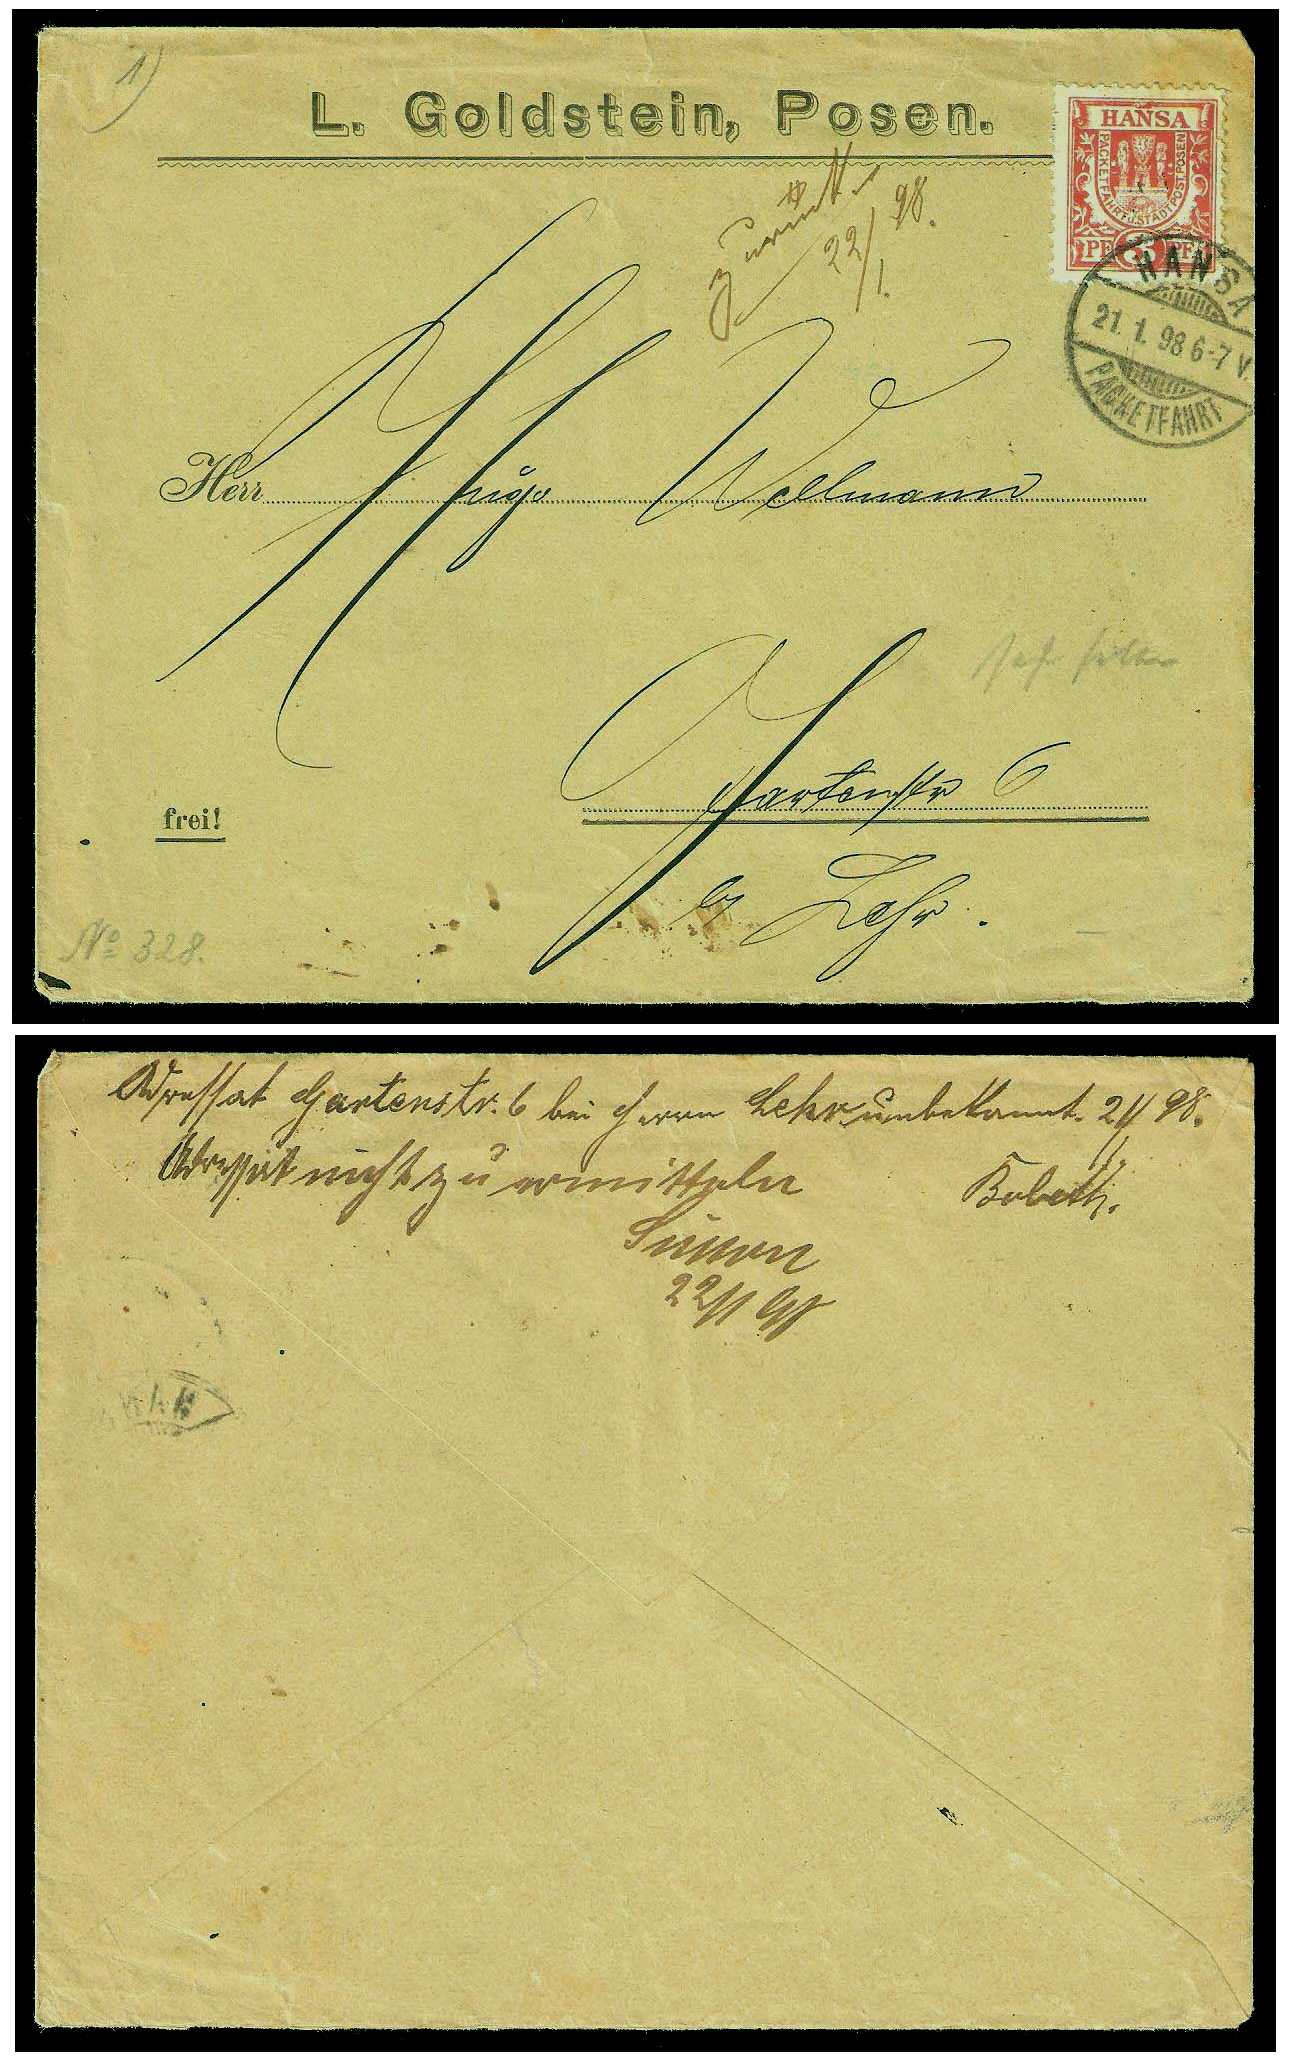 1)
L. Goldstein, Posen.
HANSA
PACKETFAHRT U. STADTPOST POSEN
PF 3 PF
zurück
22/1. 98.
HANSA
21. 1. 98 6-7 V.
PACKETFAHRT
Herr Hugo Wellmann
Gartenstr 6
frei!
by Lehr.
No 328.
Adressat Gartenstr. 6 bei Herrn Lehr unbekannt. 21/1 98.
Adressat nicht zu ermitteln
Simon
22/1 98